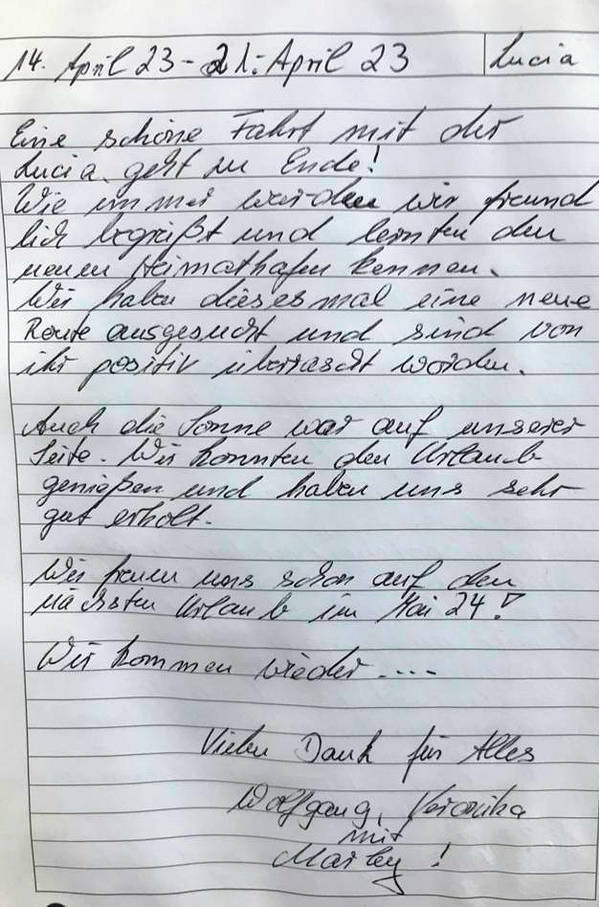 14. April 23 - 21. April 23 Lucia
Eine schöne Fahrt mit der
Lucia, geht zu Ende!
Wie immer wurden wir freund
lich begrüßt und lernten den
neuen Heimathafen kennen.
Wir haben diesesmal eine neue
Route ausgesucht und sind von
ihr positiv überrascht worden.
Auch die Sonne war auf unserer
Seite. Wir konnten den Urlaub
genießen und haben uns sehr
gut erholt.
Wir freuen uns schon auf den
nächsten Urlaub im Mai 24!
Wir kommen wieder ....
Vielen Dank für Alles
Wolfgang, Veronika
mit
Marley !